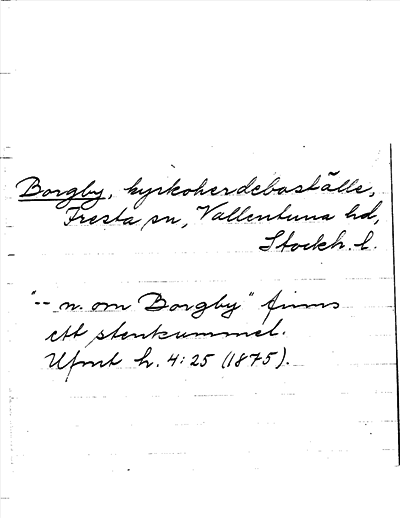 Borgby, kyrkoherdeboställe,
Fresta sn, Vallentuna hd,
Stockh. l.
"-- n. om Borgby" finns
ett stenkummel.
Ufmt h. 4:25 (1875).